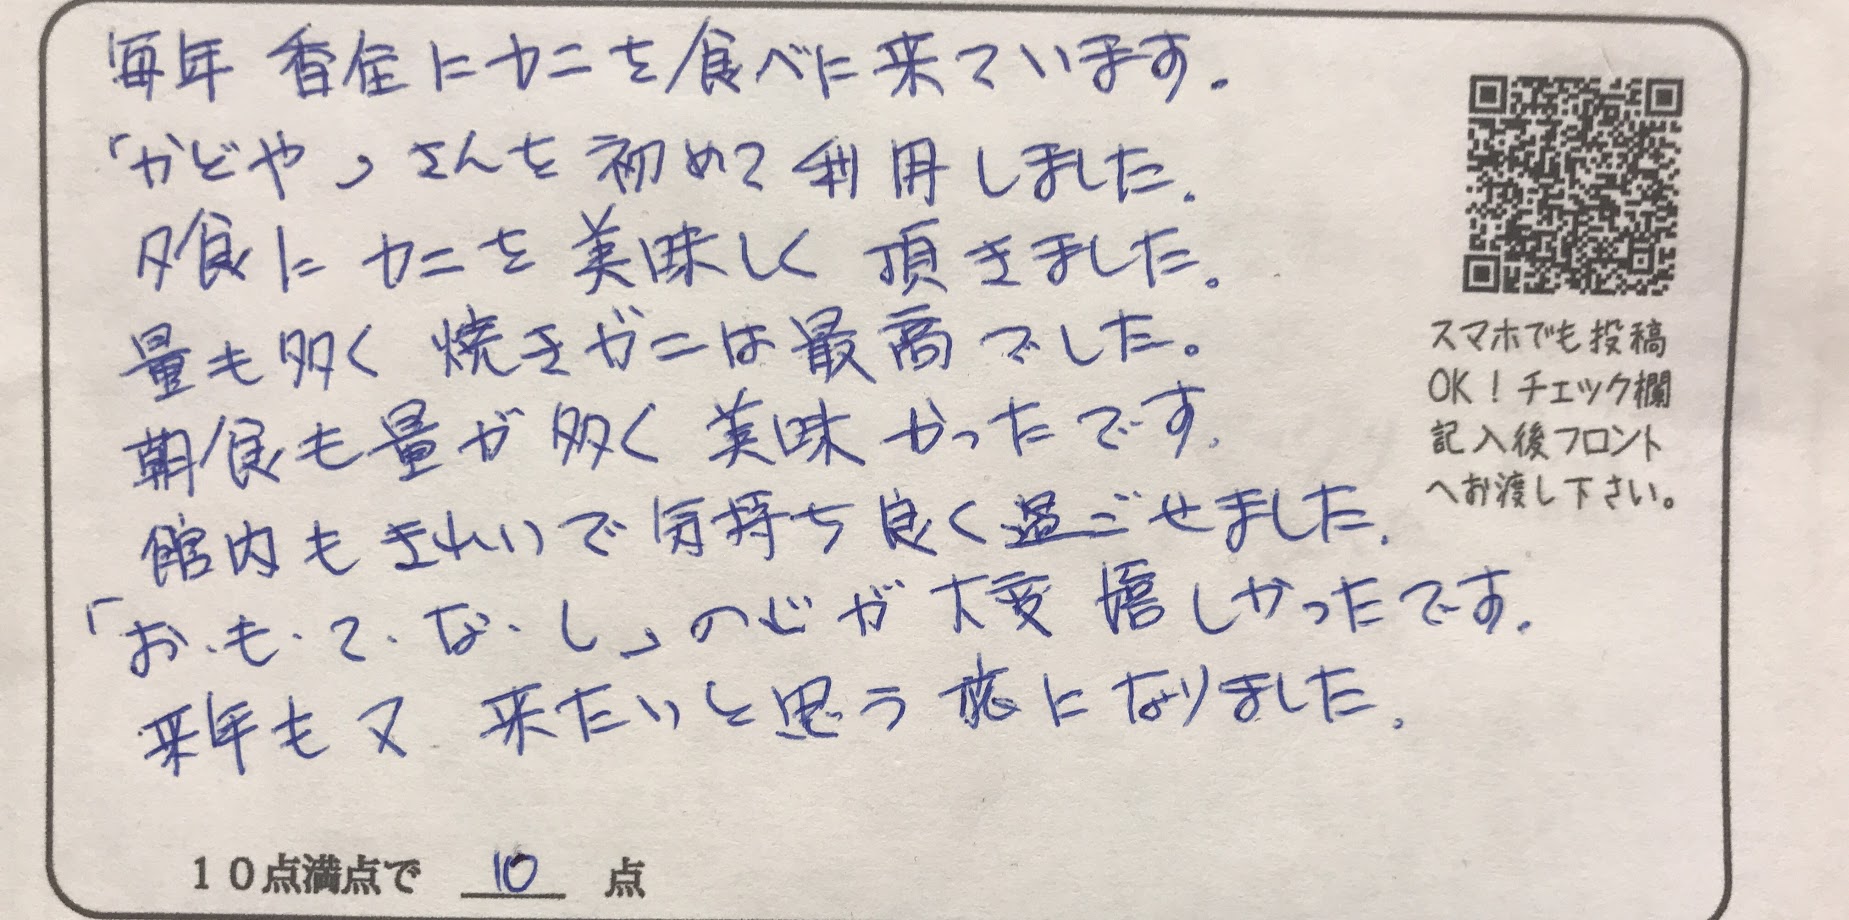 毎年 香住にカニを食べに来ています。
「かどや」さんを初めて利用しました。
夕食にカニを美味しく頂きました。
量も多く焼きガニは最高でした。
朝食も量が多く美味かったです。
館内もきれいで気持ち良く過ごせました。
「お・も・て・な・し」の心が大変嬉しかったです。
来年も又 来たいと思う旅になりました。
スマホでも投稿
OK!チェック欄
記入後フロント
へお渡し下さい。
10点満点で 10 点